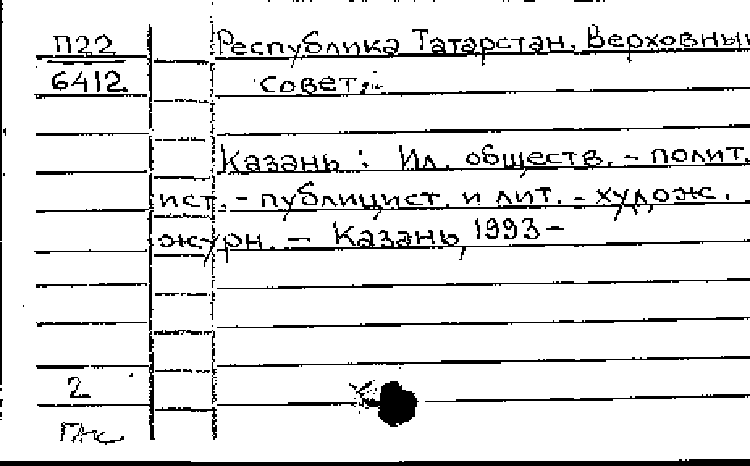 П22 Республика Татарстан. Верховный
6412 совет.
Казань : Ил. обществ. - полит.
ист. - публицист. и лит. - худож.
журн. - Казань, 1993 -
2